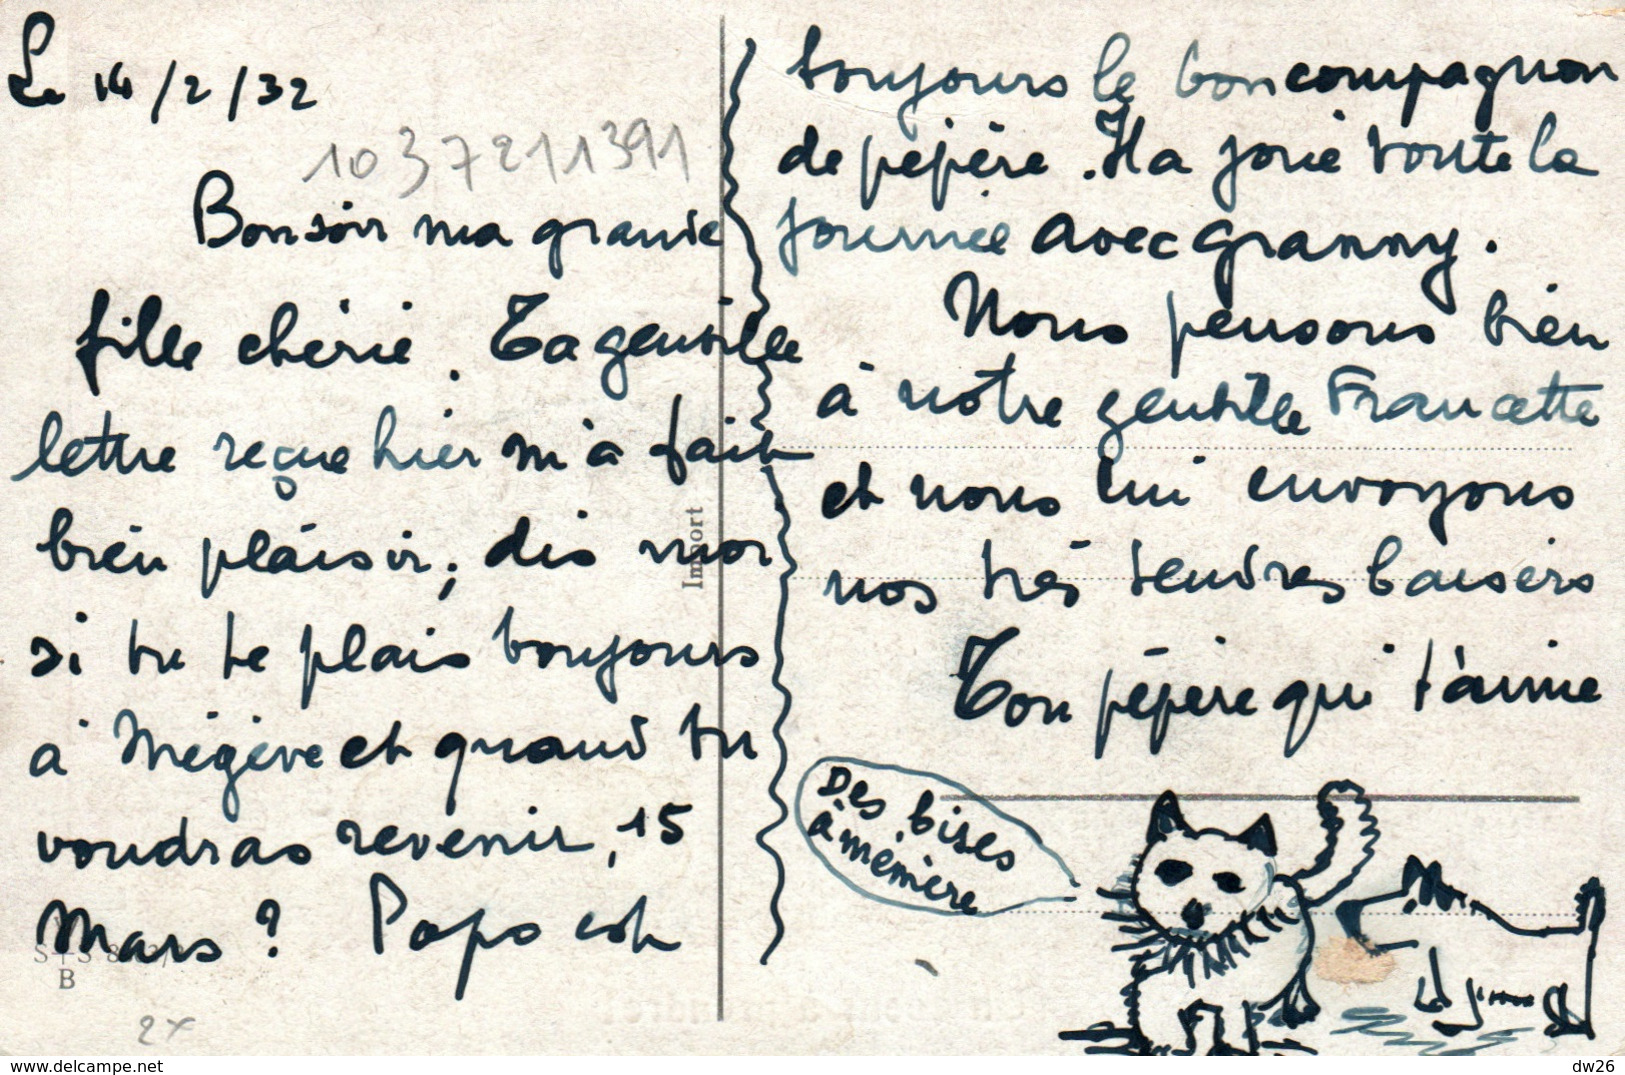 Le 14/2/32
1037211391
Bonsoir ma grande
fille chérie. Ta gentille
lettre reçue hier m'a fait
bien plaisir, dis moi
si tu te plais toujours
à Mégève et quand tu
voudras revenir, 15
Mars ? Papo est
toujours le bon compagnon
de pépère. Il a joué toute la
journée avec granny.
Nous pensons bien
à notre gentille Francette
et nous lui envoyons
nos très tendres baisers
Ton pépère qui t'aime
Des bises
à mémère
Import
B
2x
www.delcampe.net
dw26